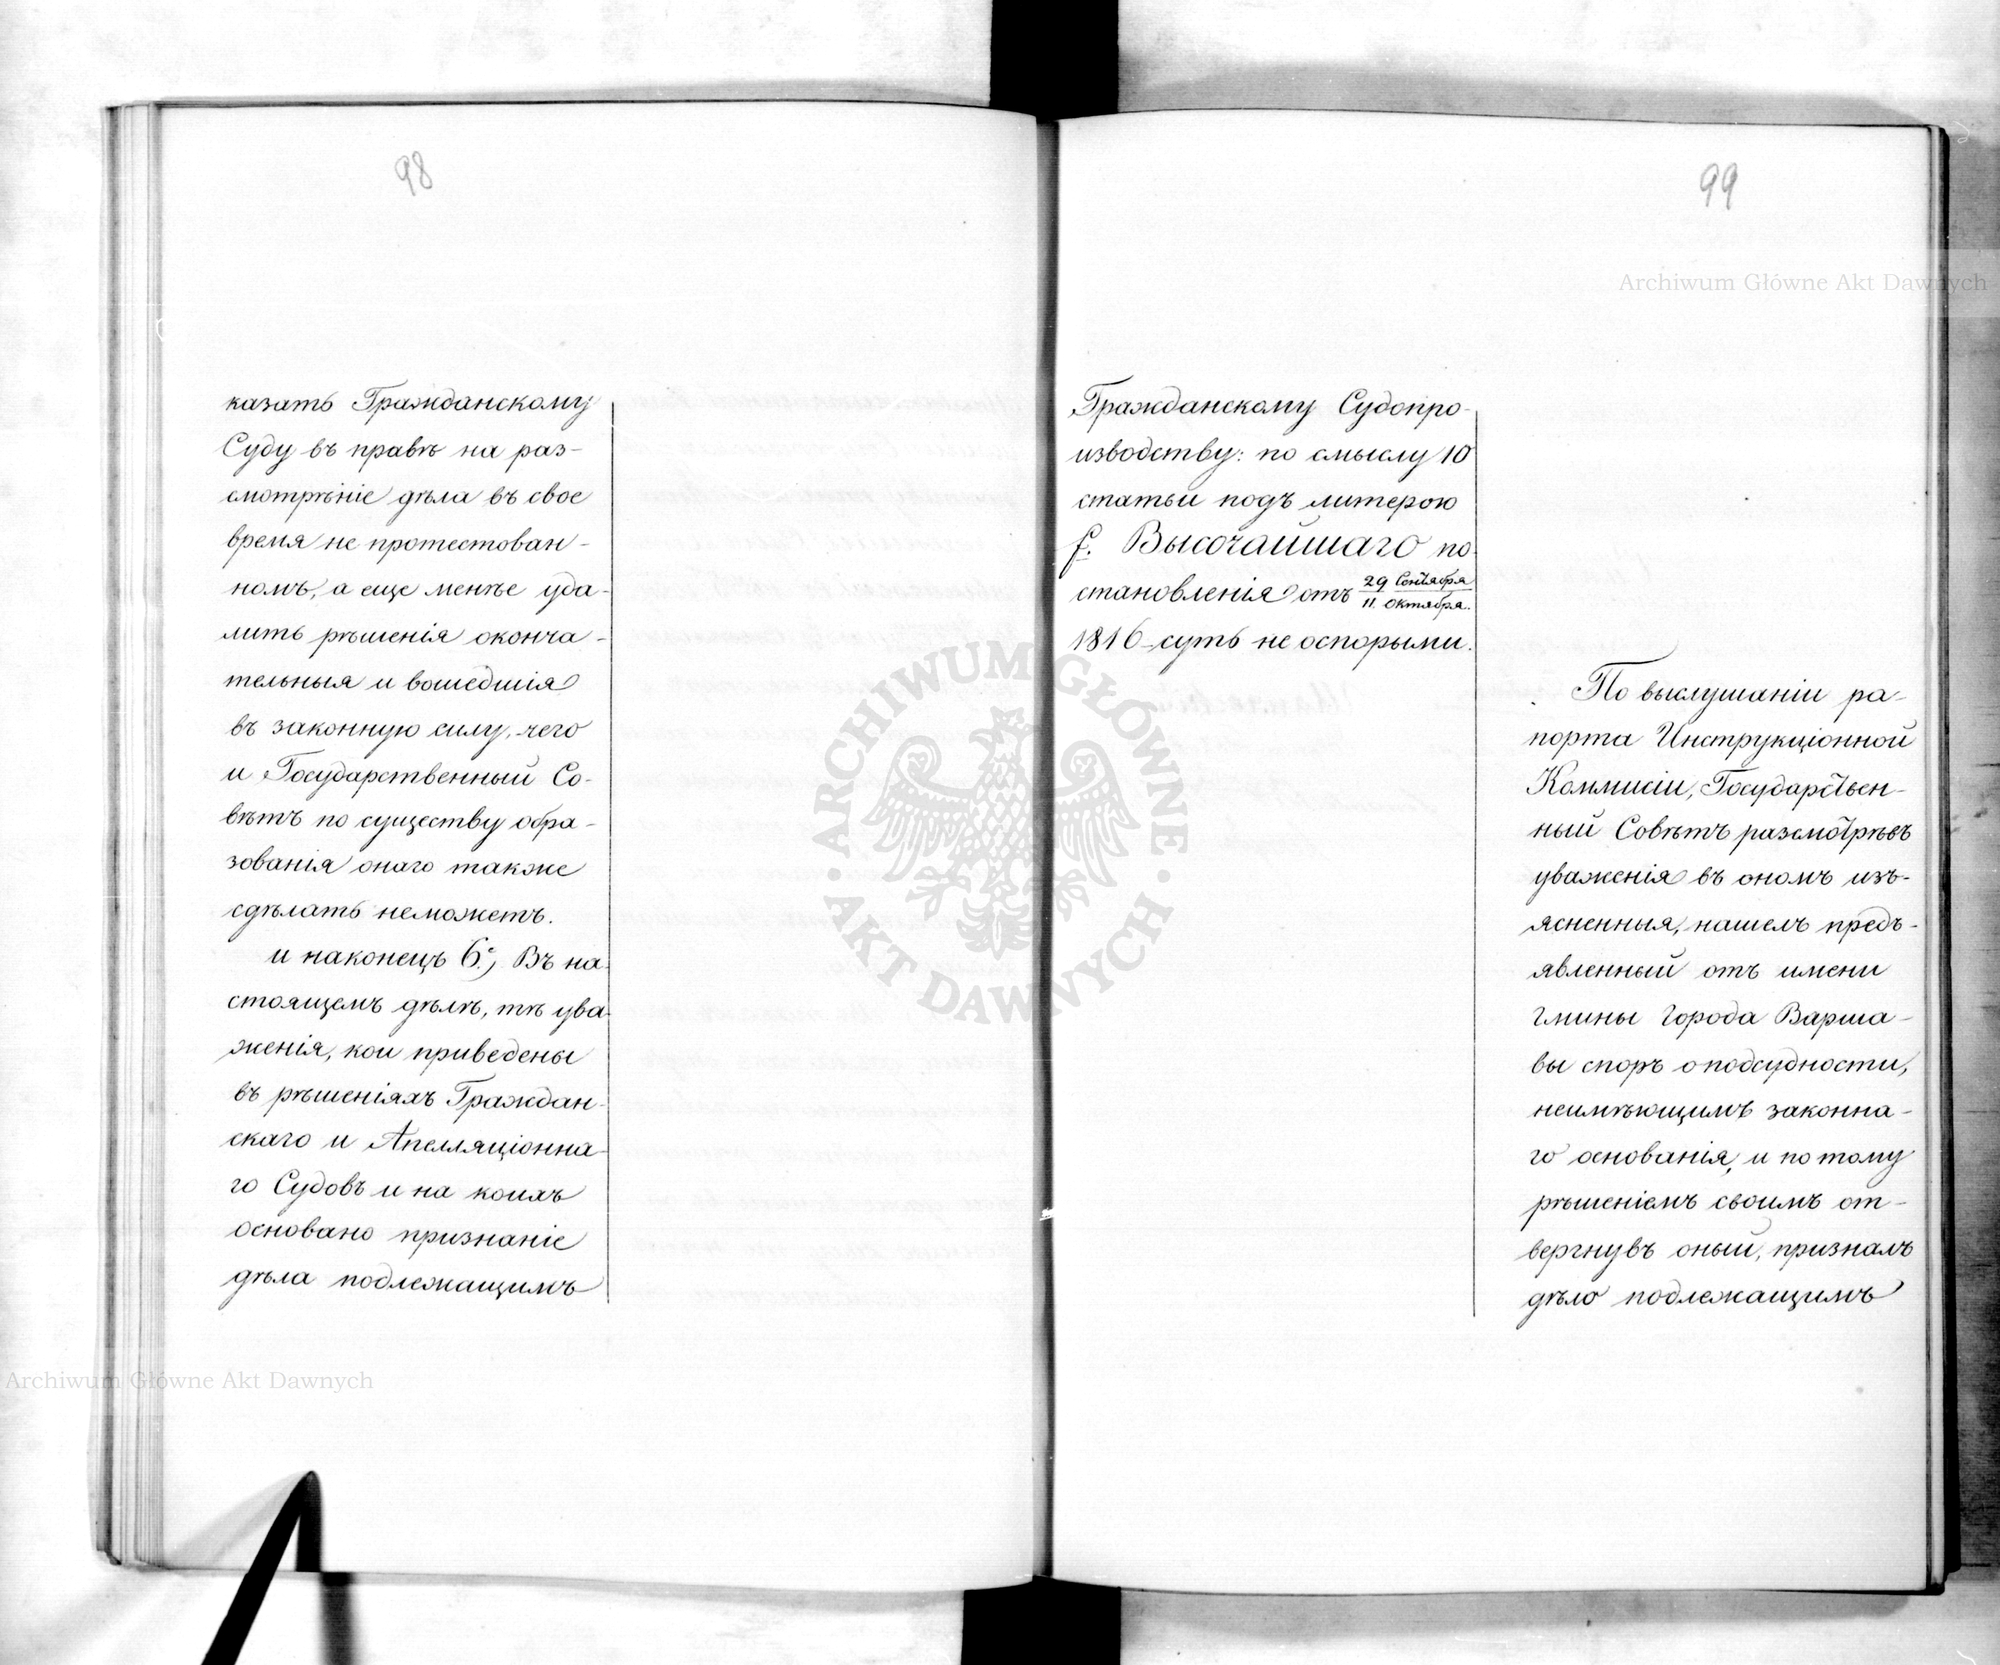 98
казать Гражданскому
Суду въ правѣ на раз-
смотрѣніе дѣла въ свое
время не протестован-
номъ, а еще менѣе уда-
лить рѣшенія оконча-
тельныя и вошедшія
въ законную силу, чего
и Государственный Со-
вѣтъ по существу обра-
зованія онаго также
сдѣлать неможетъ.
и наконецъ 6е.) Въ на-
стоящемъ дѣлѣ, тѣ ува-
женія, кои приведены
въ рѣшеніяхъ Граждан-
скаго и Апелляціонна-
го Судовъ и на коихъ
основано признаніе
дѣла подлежащимъ
99
Гражданскому Судопро-
изводству: по смыслу 10
статьи подъ литерою
f. Высочайшаго по-
становленія отъ 29 Сентября / 11. Октября.
1816 суть не оспорыми.
По выслушаніи ра-
порта Инструкціонной
Коммисіи, Государствен-
ный Совѣтъ разсмотрѣвъ
уваженія въ ономъ изъ-
ясненныя, нашелъ предъ-
явленный отъ имени
гмины города Варша-
вы споръ о подсудности,
неимѣющимъ законна-
го основанія, и потому
рѣшеніемъ своимъ от-
вергнувъ оный, призналъ
дѣло подлежащимъ
Archiwum Główne Akt Dawnych
Archiwum Główne Akt Dawnych
ARCHIWUM GŁÓWNE
AKT DAWNYCH